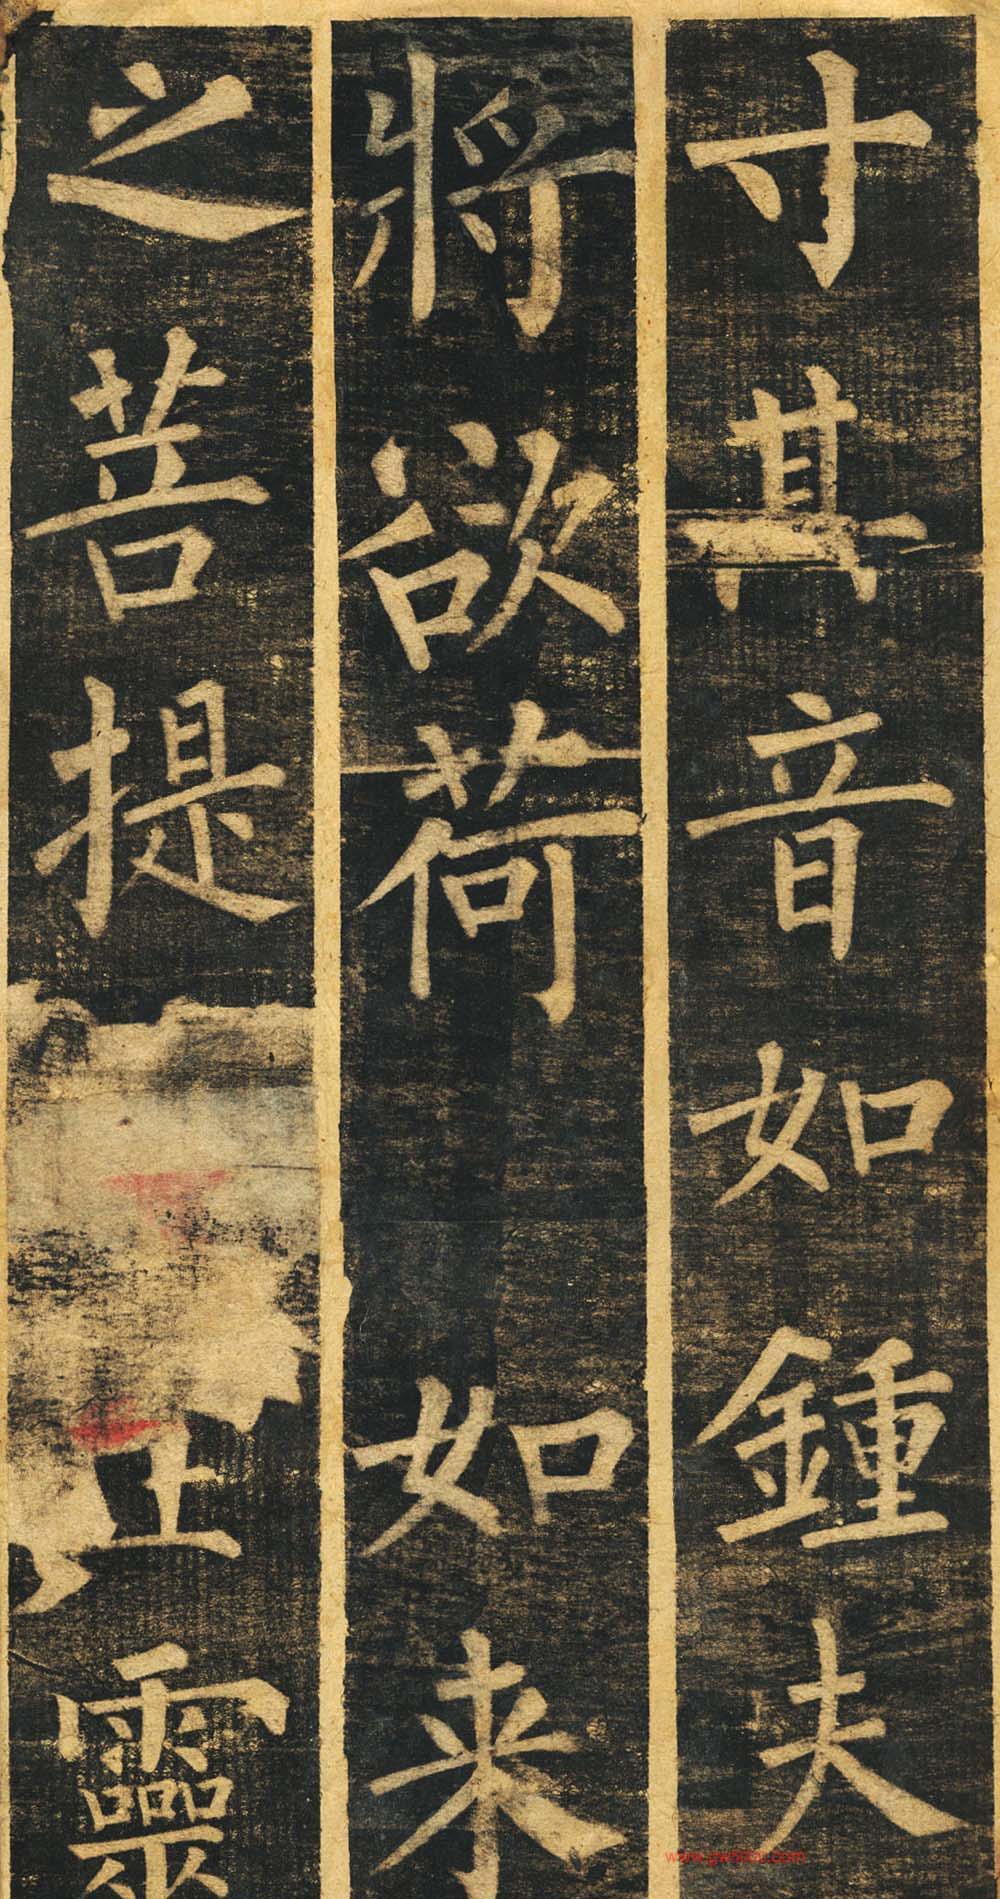 寸其音如鍾夫
將欲荷如来
之菩提止靈